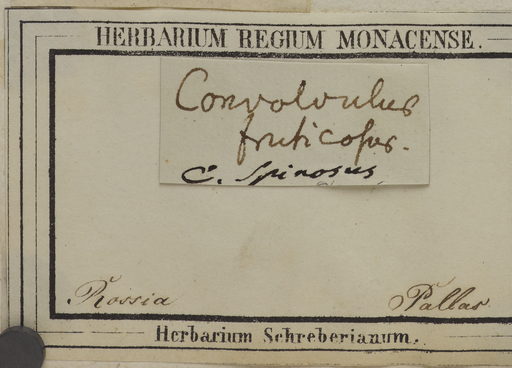 HERBARIUM REGIUM MONACENSE.
Convolvulus
fruticosus.
C. Spinosus
Rossia
Pallas
Herbarium Schreberianum.